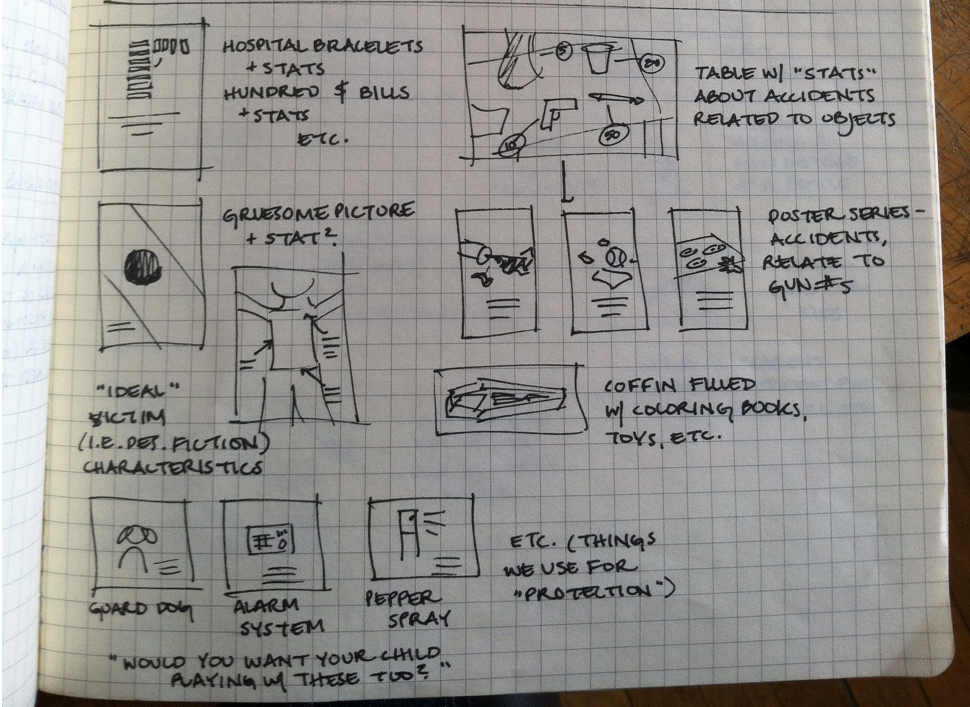 HOSPITAL BRACELETS
+ STATS
HUNDRED $ BILLS
+ STATS
ETC.
5
20
10
50
TABLE W/ "STATS"
ABOUT ACCIDENTS
RELATED TO OBJECTS
GRUESOME PICTURE
+ STAT?
POSTER SERIES-
ACCIDENTS,
RELATE TO
GUN #S
"IDEAL"
VICTIM
(I.E. DES. FICTION)
CHARACTERISTICS
COFFIN FILLED
W/ COLORING BOOKS,
TOYS, ETC.
GUARD DOG
ALARM
SYSTEM
PEPPER
SPRAY
ETC. (THINGS
WE USE FOR
"PROTECTION")
"WOULD YOU WANT YOUR CHILD
PLAYING W/ THESE TOO?"